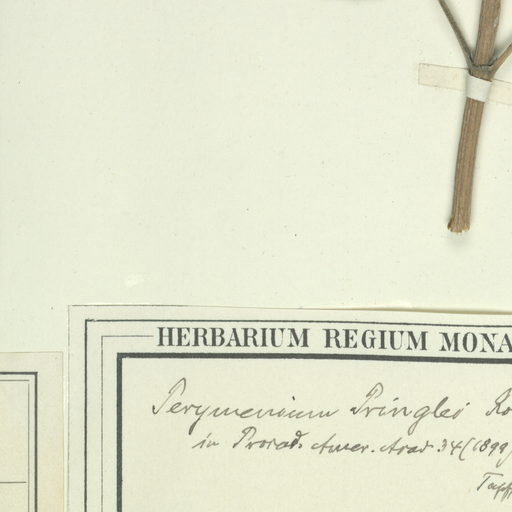 HERBARIUM REGIUM MONA
Perymenium Pringlei Ro
in Proead. Amer. Acad 34 (1899)